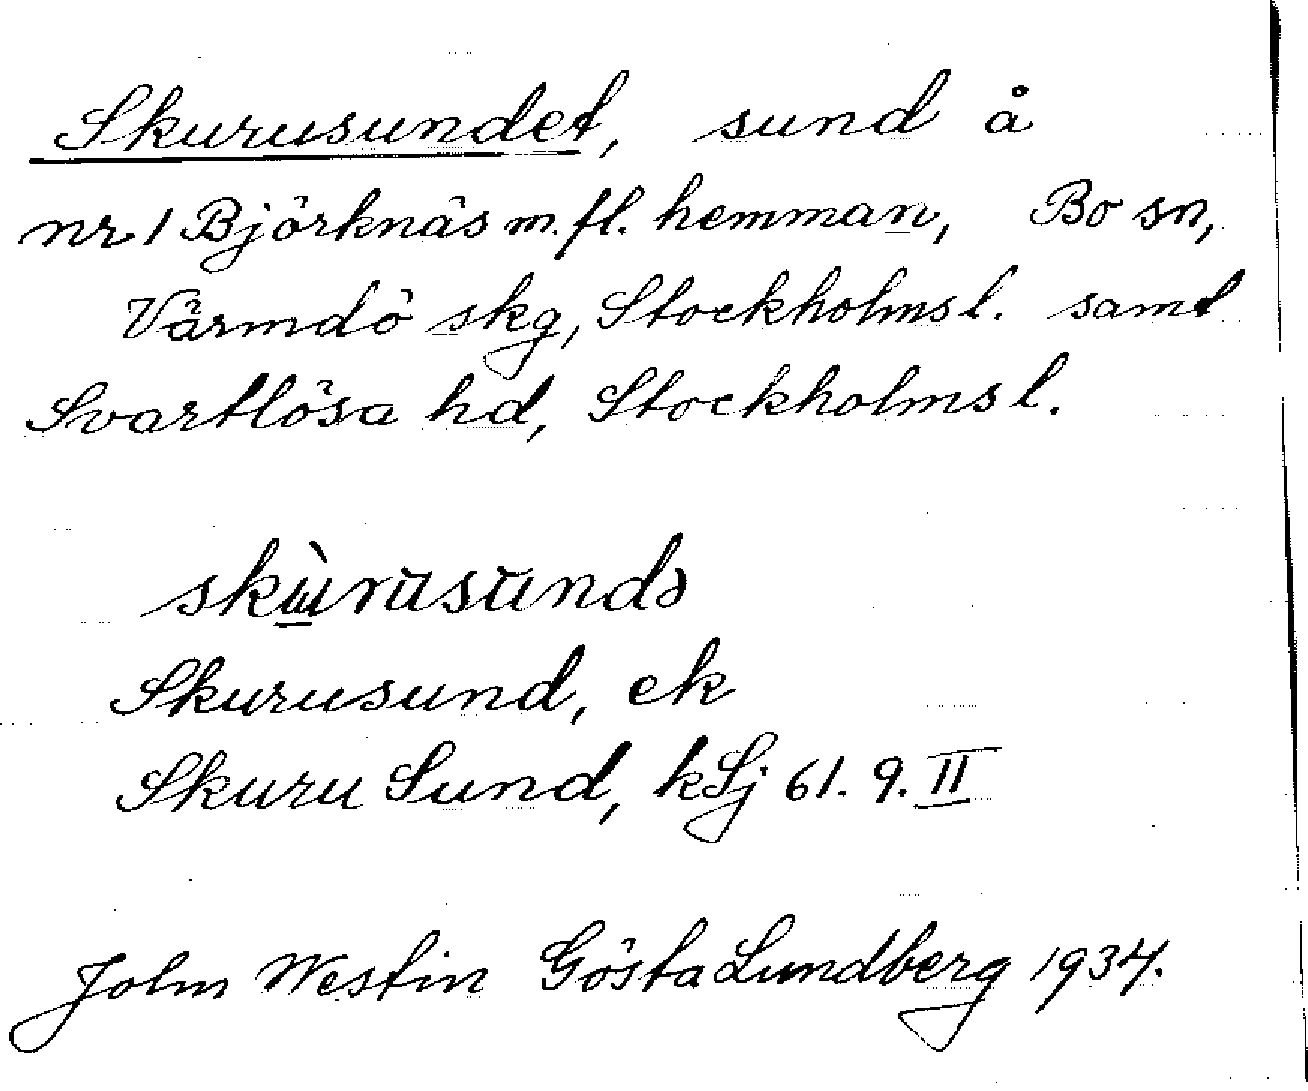 Skurusundet, sund å
nr 1 Björknäs m.fl. hemman, Bo sn,
Värmdö skg, Stockholms l. samt
Svartlösa hd, Stockholms l.
Skurusund, ek
Skuru Sund, kSj 61. 9. II
John Westin Gösta Lundberg 1934.